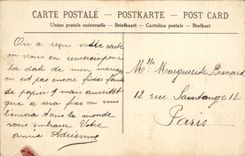 CARTE POSTALE — POSTKARTE — POST CARD
Union postale universelle — Briefkaart — Cartolina postale — Brefkort
On a reçu votre carte
on vous en remercie pour
la date de mon mariage
on est pas encore fixés faute
de papiers mais aussitôt
que se sera fixé on vous
l'écrira Tout le monde
vous embrasse Votre
amie Adrienne
Mlle Marguerite Bernard
12 rue Santange 12
Paris